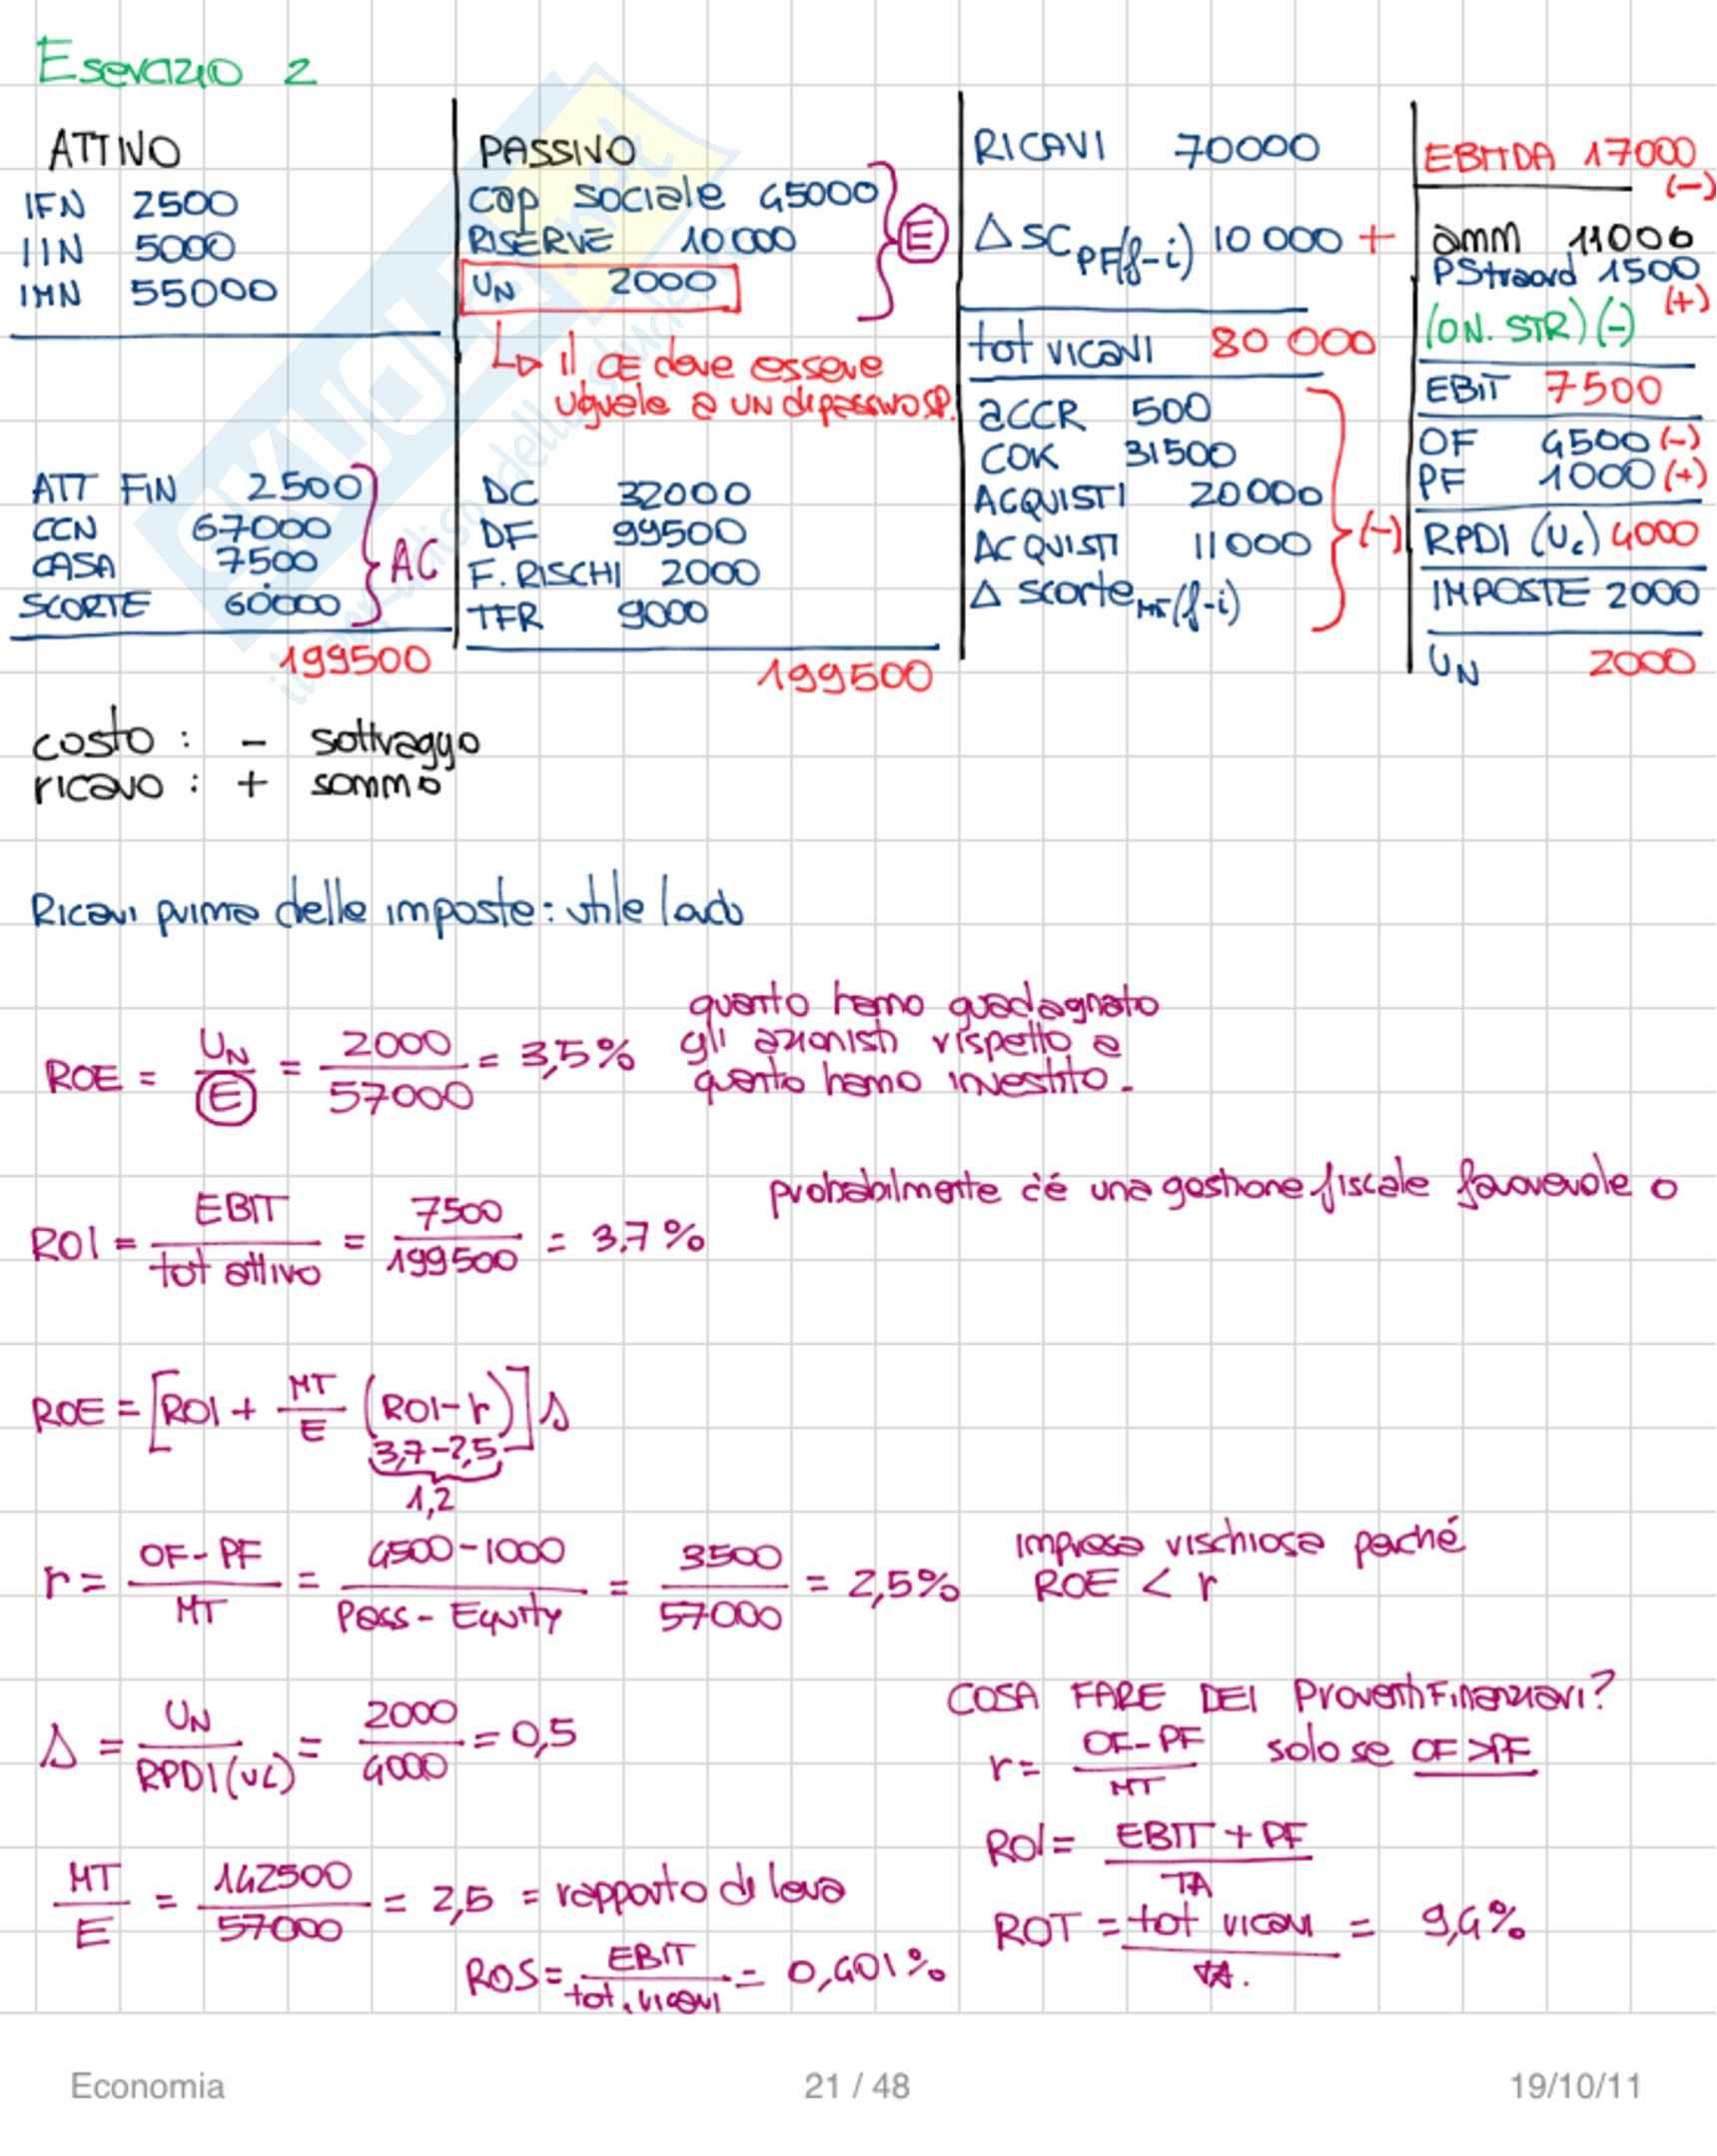 Esercizio 2
ATTIVO
IFN 2500
IIN 5000
IMN 55000
ATT FIN 2500
CCN 67000
CASA 7500
SCORTE 60000
AC
199500
PASSIVO
cap sociale 45000
RISERVE 10000
UN 2000
E
↳ il CE deve essere
uguale a UN di passivo SP.
DC 32000
DF 99500
F. RISCHI 2000
TFR 9000
199500
RICAVI 70000
Δ SC PF(f-i) 10 000 +
tot ricavi 80 000
accr 500
COK 31500
ACQUISTI 20000
ACQUISTI 11000
Δ scorte MT(f-i)
(-)
EBITDA 17000
(-)
amm 11000
PStraord 1500
(+)
(ON. STR) (-)
EBIT 7500
OF 4500 (-)
PF 1000 (+)
RPDI (UL) 4000
IMPOSTE 2000
UN 2000
costo : - sottraggo
ricavo : + sommo
Ricavi prima delle imposte: utile lordo
ROE = UN / E = 2000 / 57000 = 3,5%
quanto hanno guadagnato
gli azionisti rispetto a
quanto hanno investito.
ROI = EBIT / tot attivo = 7500 / 199500 = 3,7%
probabilmente c'è una gestione fiscale favorevole o
ROE = [ROI + MT / E (ROI-r)] s
3,7-2,5
1,2
r = OF-PF / MT = 4500-1000 / Pass - Equity = 3500 / 57000 = 2,5%
impresa rischiosa perché
ROE < r
s = UN / RPDI (UL) = 2000 / 4000 = 0,5
COSA FARE DEI Proventi Finanziari?
r = OF-PF / MT solo se OF>PF
ROI = EBIT + PF / TA
MT / E = 142500 / 57000 = 2,5 = rapporto di leva
ROT = tot ricavi / TA. = 9,4%
ROS = EBIT / tot. ricavi = 0,401%
Economia
21 / 48
19/10/11